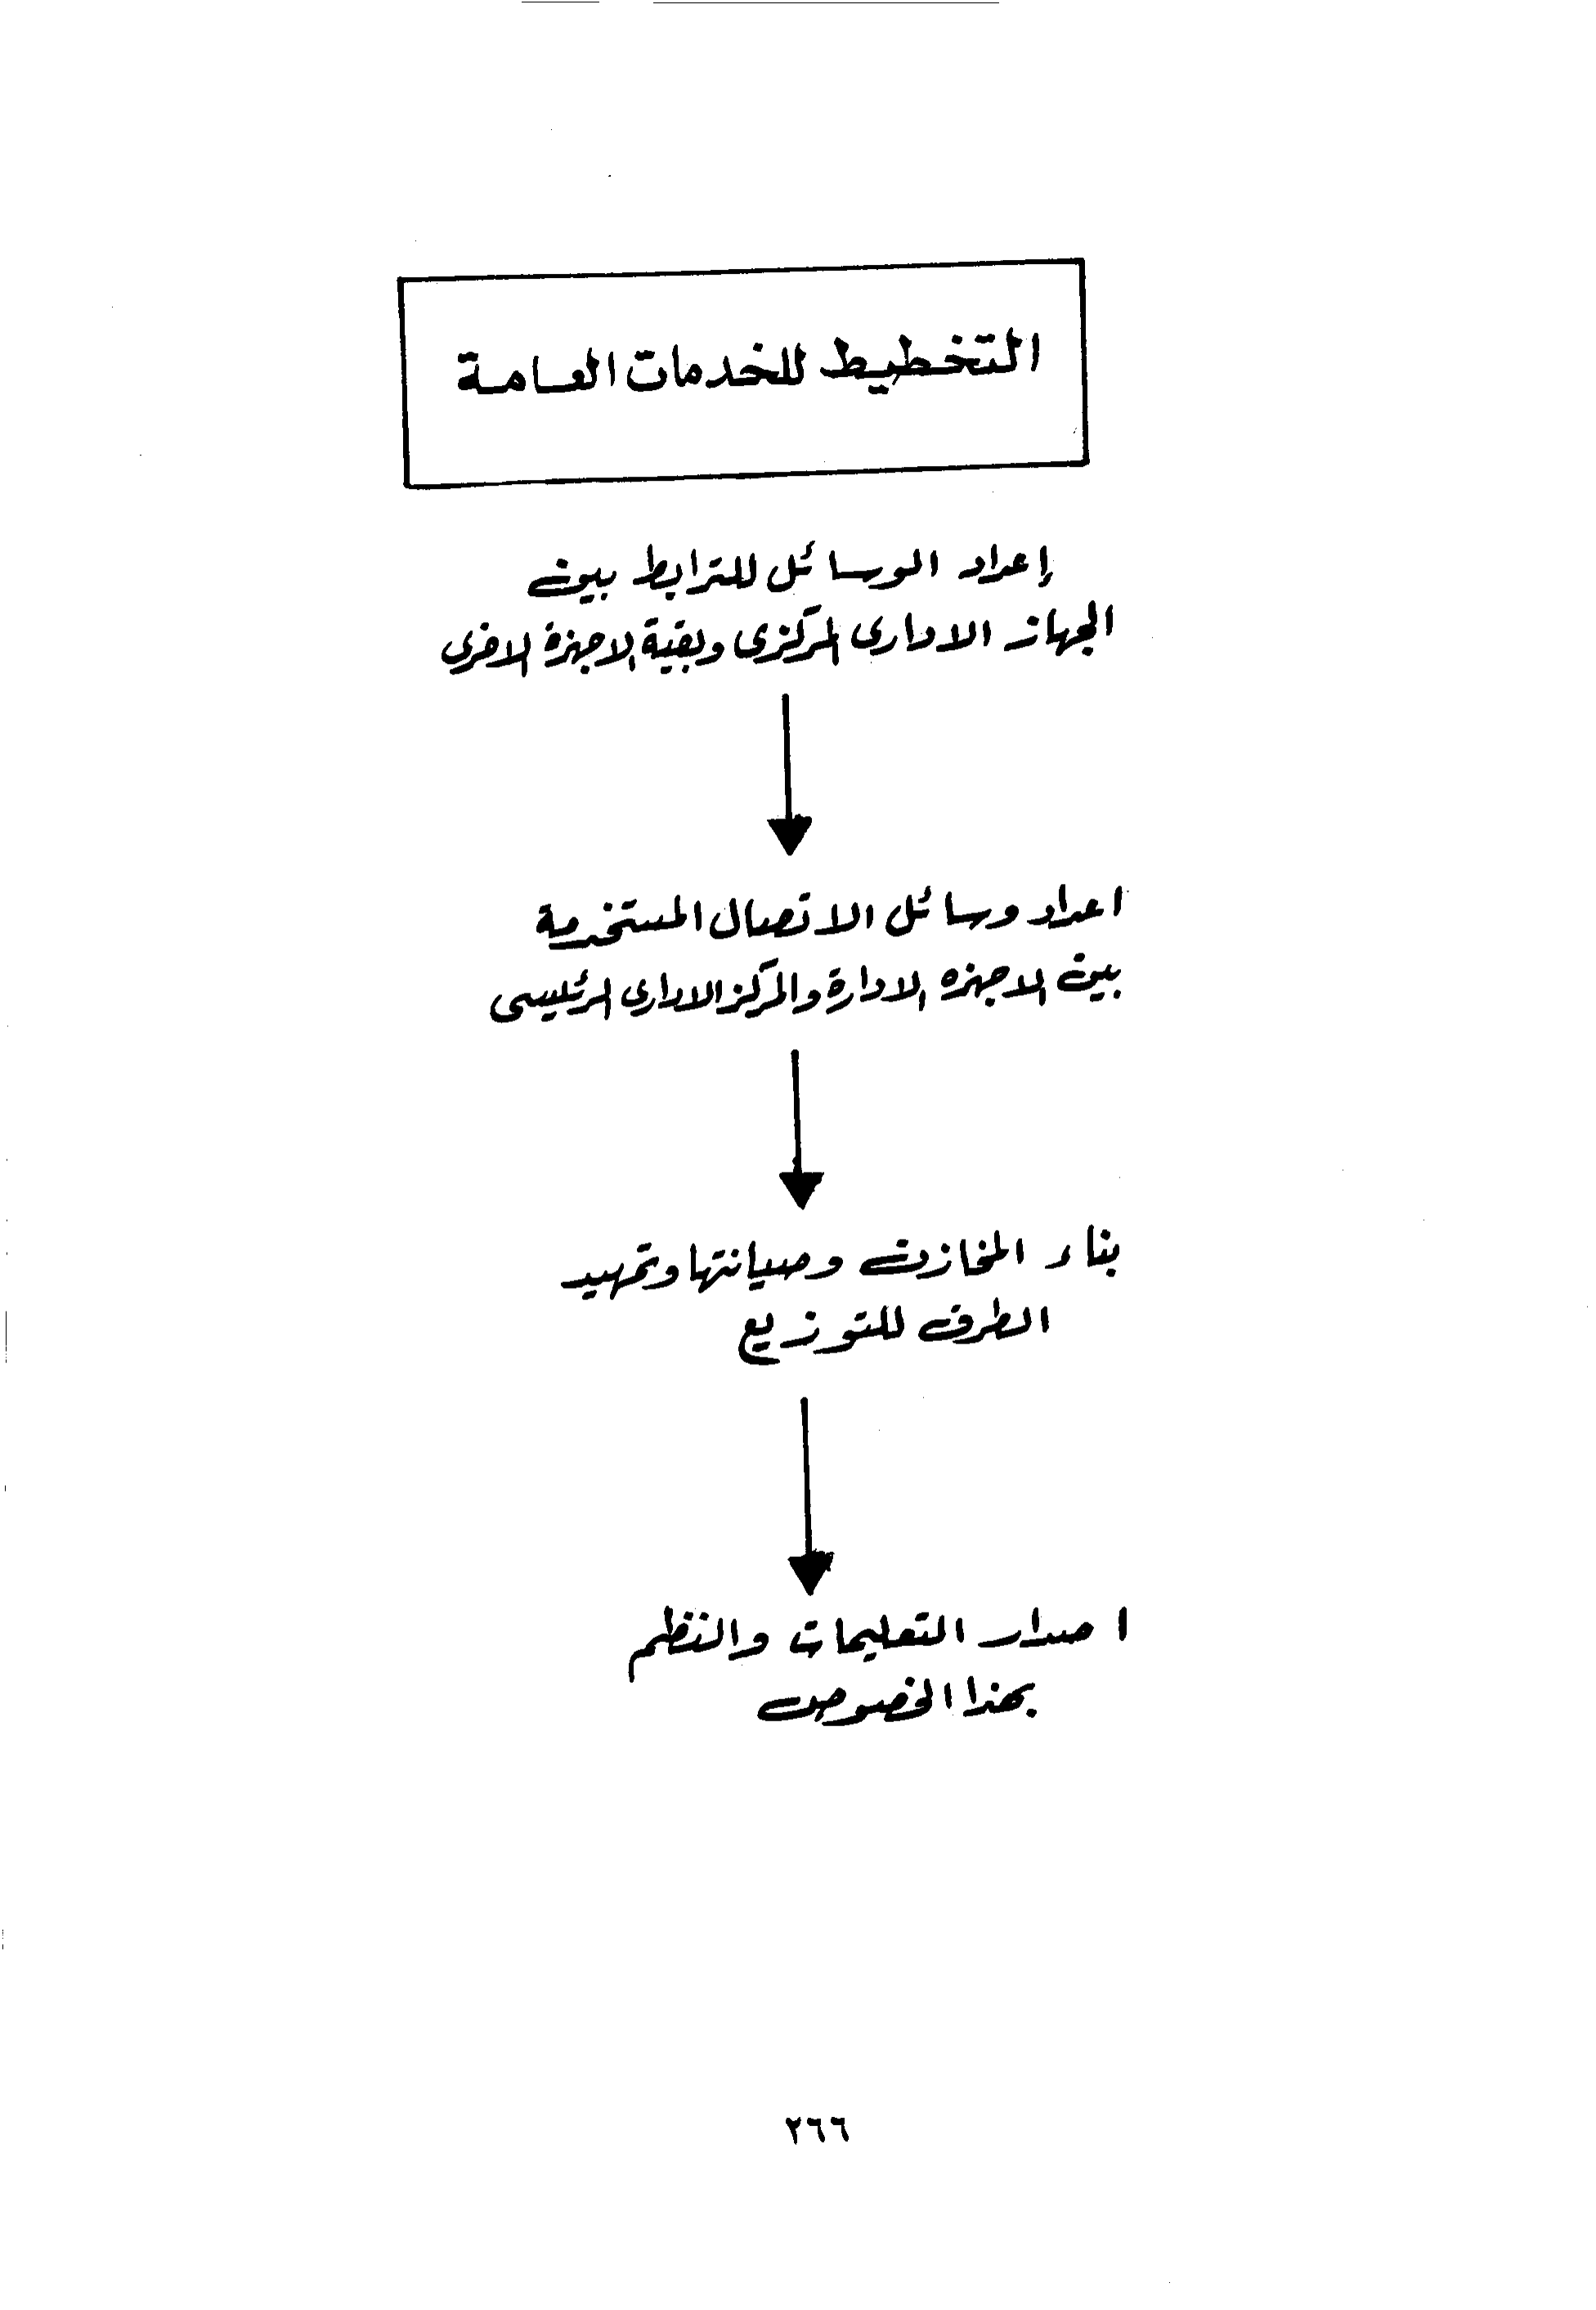 التخطيط للخدمات العامة
إعداد الوسائل للترابط بين
الجهاز الادارى المركزى وبقية الاجهزة الاخرى
اعداد وسائل الاتصال المستخدمة
بين الاجهزه الادارة والمركز الادارى الرئيسى
بناء المخازن وصيانتها وتمهيد
الطرق للتوزيع
اصدار التعليمات والنظم
بهذا الخصوص
٢٦٦